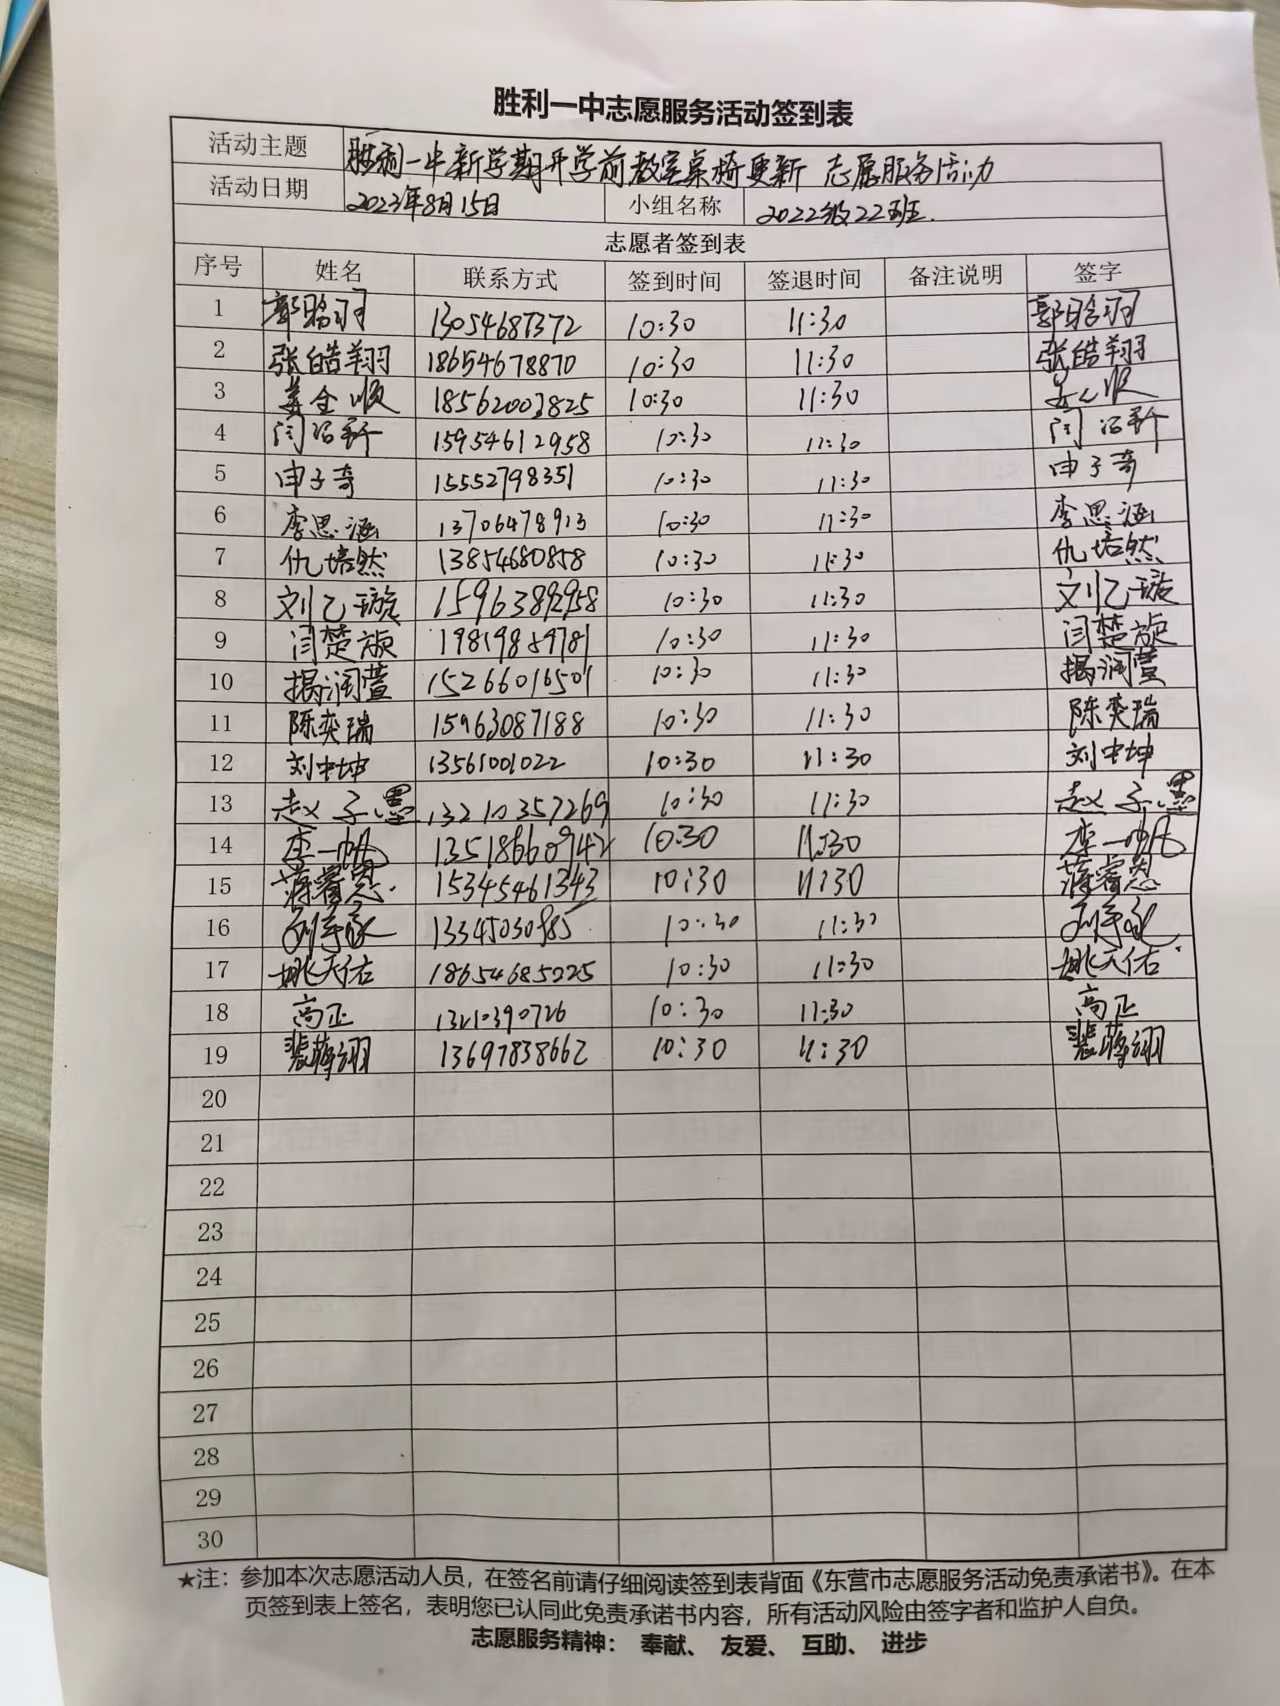 胜利一中志愿服务活动签到表
活动主题 胜利一中新学期开学前教室桌椅更新 志愿服务活动
活动日期 2023年8月15日 小组名称 2022级22班.
志愿者签到表
序号 姓名 联系方式 签到时间 签退时间 备注说明 签字
1 13054687372 10:30 11:30
2 张皓翔 18654678870 10:30 11:30 张皓翔
3 姜全顺 18562003825 10:30 11:30
4 15954612958 10:30 11:30
5 申子奇 15552798351 10:30 11:30 申子奇
6 李思涵 13706478913 10:30 11:30 李思涵
7 仇培然 13854680858 10:30 11:30 仇培然
8 刘乙璇 15963892958 10:30 11:30 刘乙璇
9 闫楚旋 10:30 11:30 闫楚旋
10 揭润萱 15266016501 10:30 11:30 揭润萱
11 陈奕瑞 15963087188 10:30 11:30 陈奕瑞
12 刘中坤 13561001022 10:30 11:30 刘中坤
13 赵子墨 13210357269 10:30 11:30 赵子墨
14 李一帆 13518660942 10:30 11:30 李一帆
15 蒋睿恩 15345461343 10:30 11:30 蒋睿恩
16 13345030985 10:30 11:30
17 姚天佑 18654685225 10:30 11:30 姚天佑
18 高正 13210390726 10:30 11:30 高正
19 裴蒋翊 13697838662 10:30 11:30 裴蒋翊
20
21
22
23
24
25
26
27
28
29
30
★注：参加本次志愿活动人员，在签名前请仔细阅读签到表背面《东营市志愿服务活动免责承诺书》。在本
页签到表上签名，表明您已认同此免责承诺书内容，所有活动风险由签字者和监护人自负。
志愿服务精神： 奉献、 友爱、 互助、 进步